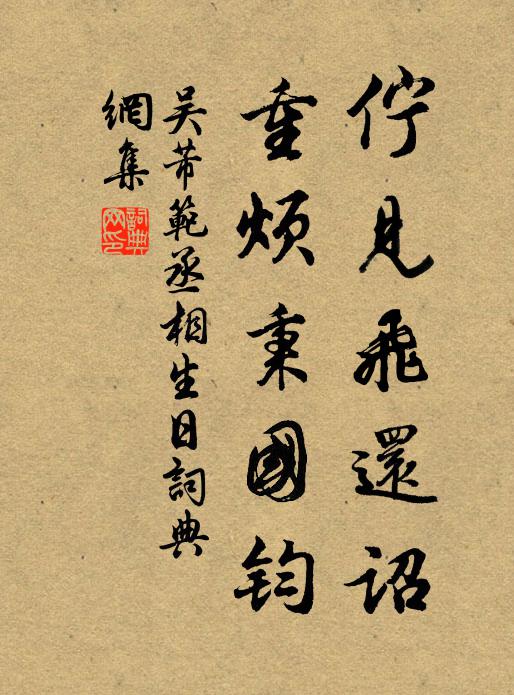 佇見飛還詔
重煩秉國鈞
吳芾範丞相生日詞典
網集
詞典網印